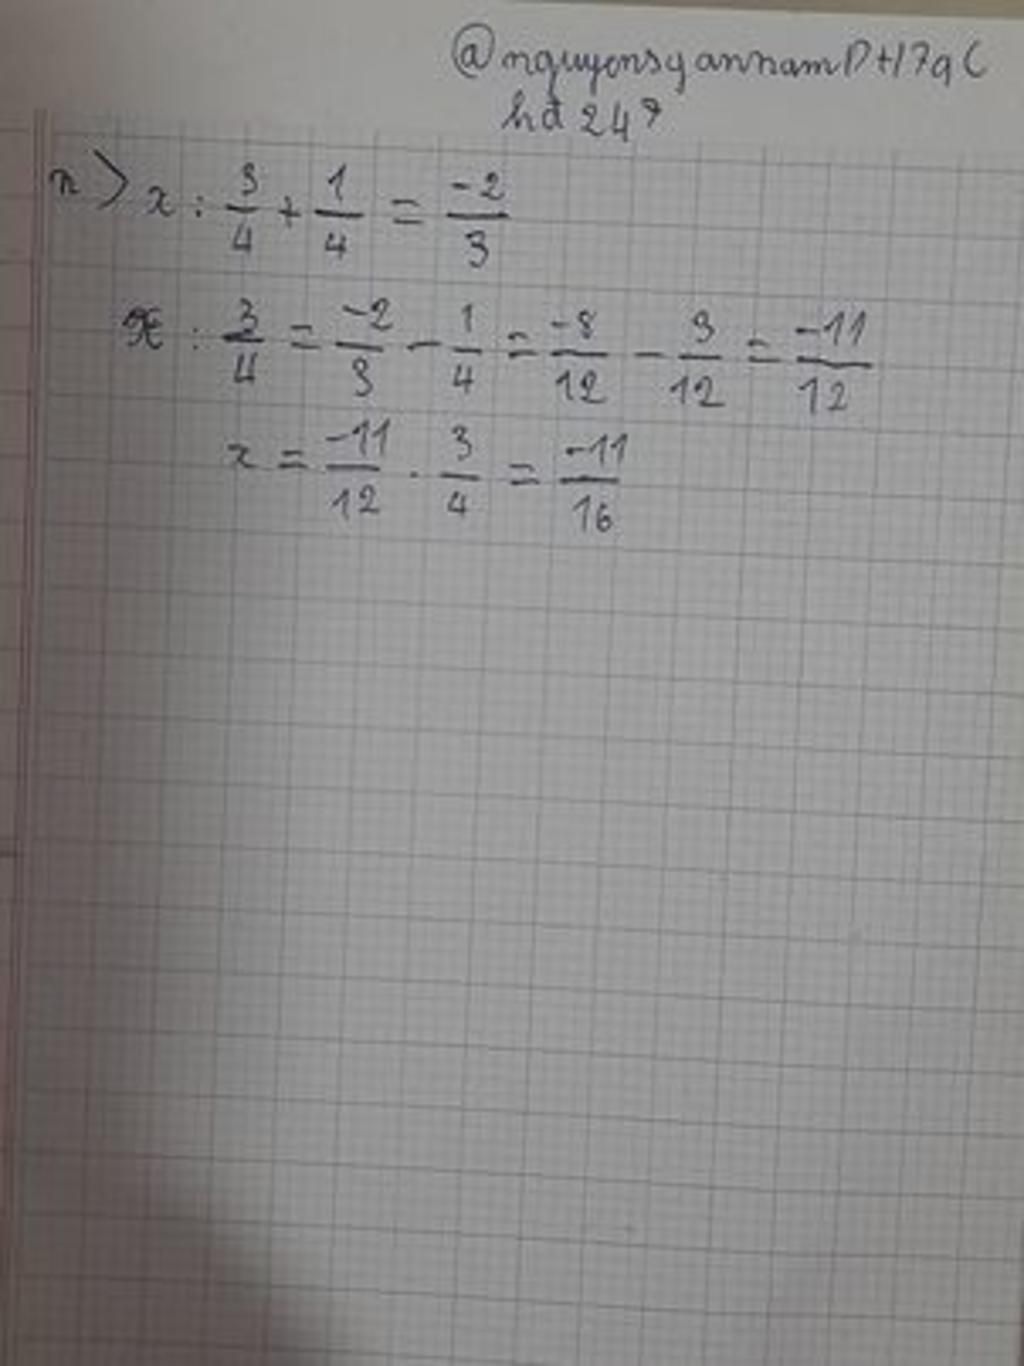 @nguyensyannamPt17qC
hd247
n> x : 3/4 + 1/4 = -2/3
x : 3/4 = -2/3 - 1/4 = -8/12 - 3/12 = -11/12
x = -11/12 . 3/4 = -11/16